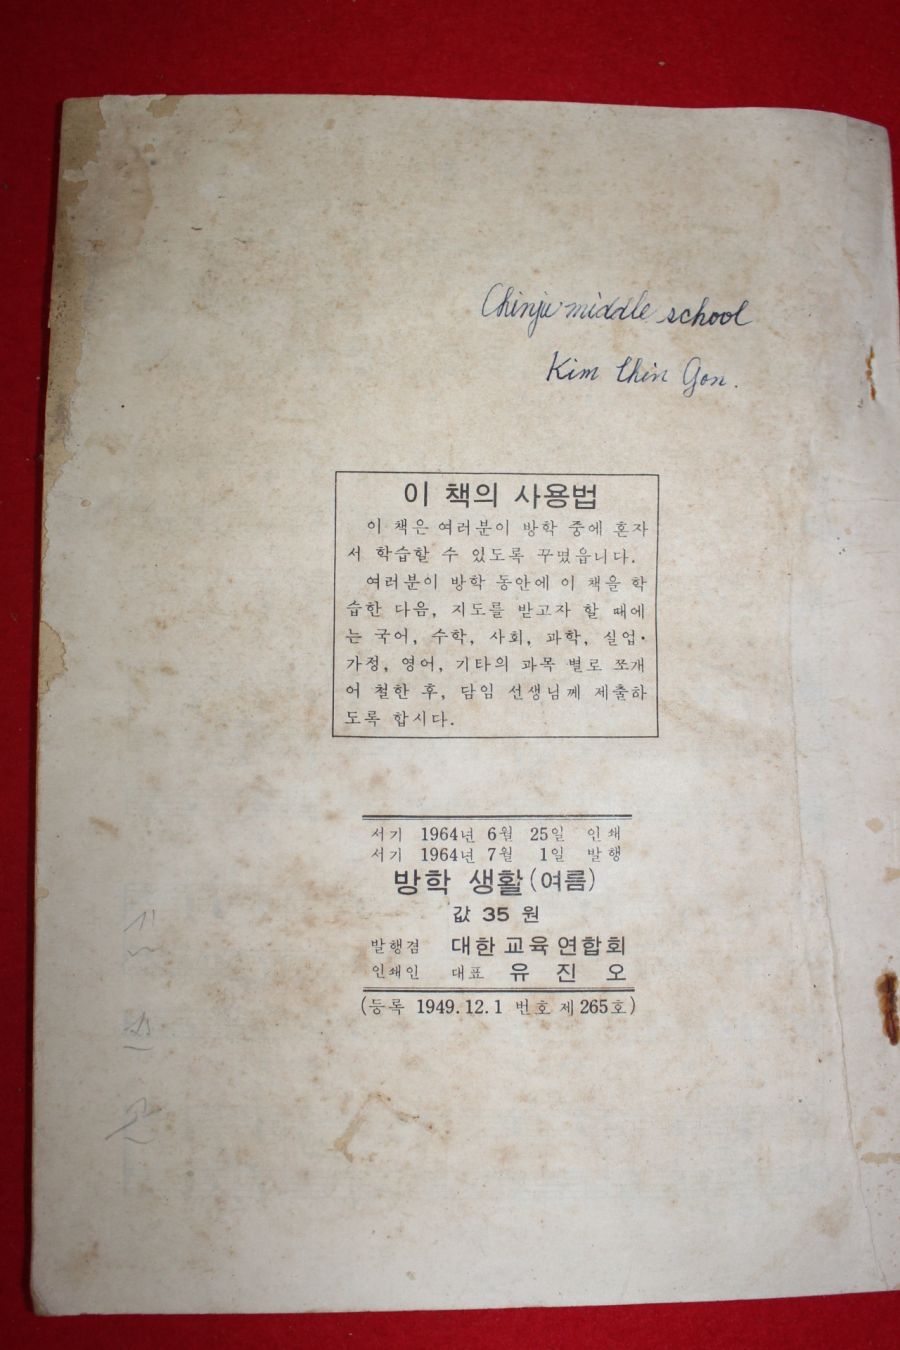 Chinju middle school
Kim Chin Gon.
이 책의 사용법
이 책은 여러분이 방학 중에 혼자
서 학습할 수 있도록 꾸몄읍니다.
여러분이 방학 동안에 이 책을 학
습한 다음, 지도를 받고자 할 때에
는 국어, 수학, 사회, 과학, 실업·
가정, 영어, 기타의 과목 별로 쪼개
어 철한 후, 담임 선생님께 제출하
도록 합시다.
서기 1964년 6월 25일 인쇄
서기 1964년 7월 1일 발행
방학 생활(여름)
값 35 원
발행겸 대한 교육 연합회
인쇄인 대표 유 진 오
(등록 1949.12.1 번호 제265호)